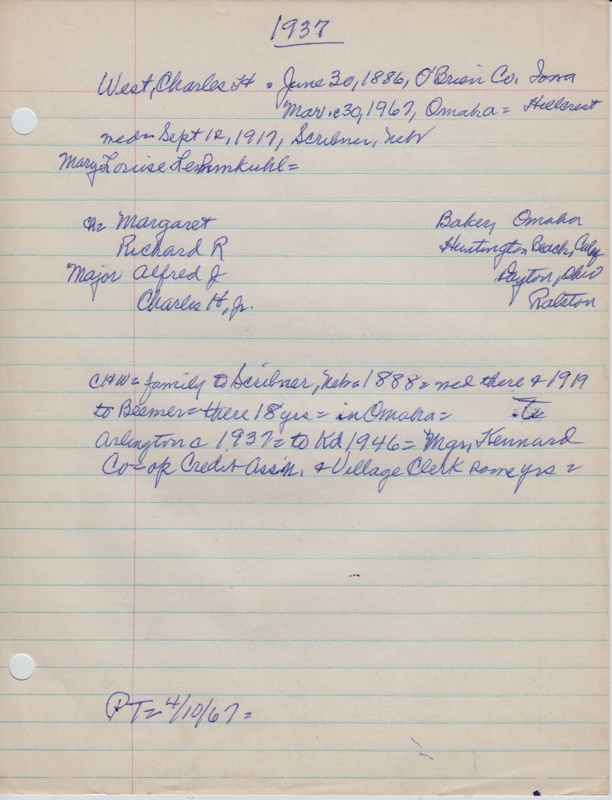 1937
West, Charles H = June 30, 1886, O'Brien Co. Iowa
Mar. 30, 1967, Omaha = Hillcrest
med = Sept 12, 1917, Scribner, Neb
Mary Louise
ch = Margaret Baker, Omaha
Richard R Huntington Beach, Calif
Major Alfred J Dayton, Ohio
Charles H, Jr. Ralston
CHW = family to Scribner, Neb = 1888 = med there & 1919
to Beemer = there 18 yrs = in Omaha = To
Arlington c 1937 = to Kd, 1946 = Mgr, Kennard
Co-op Credit Ass'n, & Village Clerk some yrs =
PT = 4/10/67 =